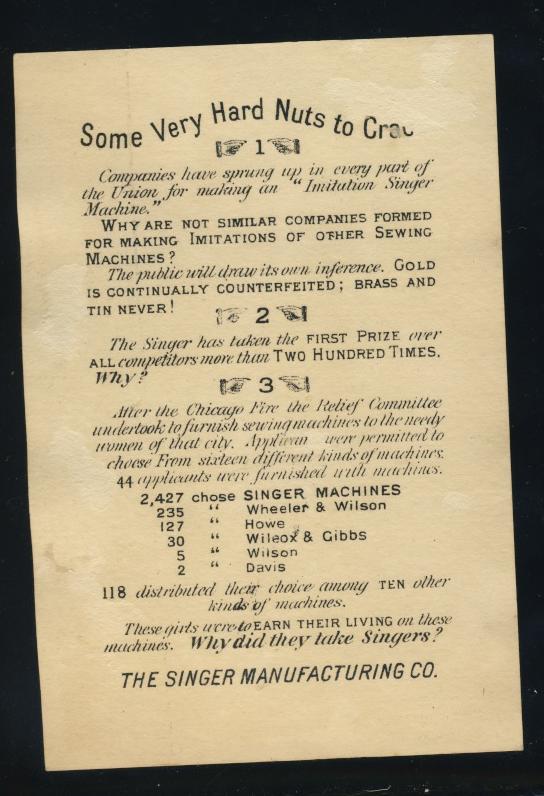 Some Very Hard Nuts to
1
Companies have sprung up in every part of
the Union for making an "Imitation Singer
Machine."
WHY ARE NOT SIMILAR COMPANIES FORMED
FOR MAKING IMITATIONS OF OTHER SEWING
MACHINES?
The public will draw its own inference. GOLD
IS CONTINUALLY COUNTERFEITED; BRASS AND
TIN NEVER!
2
The Singer has taken the FIRST PRIZE over
ALL competitors more than TWO HUNDRED TIMES.
Why?
3
After the Chicago Fire the Relief Committee
undertook to furnish sewing machines to the needy
women of that city. were permitted to
choose From sixteen different kinds of machines.
44 applicants were furnished with machines.
2,427 chose SINGER MACHINES
235 " Wheeler & Wilson
127 " Howe
30 " Wilcox & Gibbs
5 " Wilson
2 " Davis
118 distributed their choice among TEN other
kinds of machines.
These girls were to EARN THEIR LIVING on these
machines. Why did they take Singers?
THE SINGER MANUFACTURING CO.